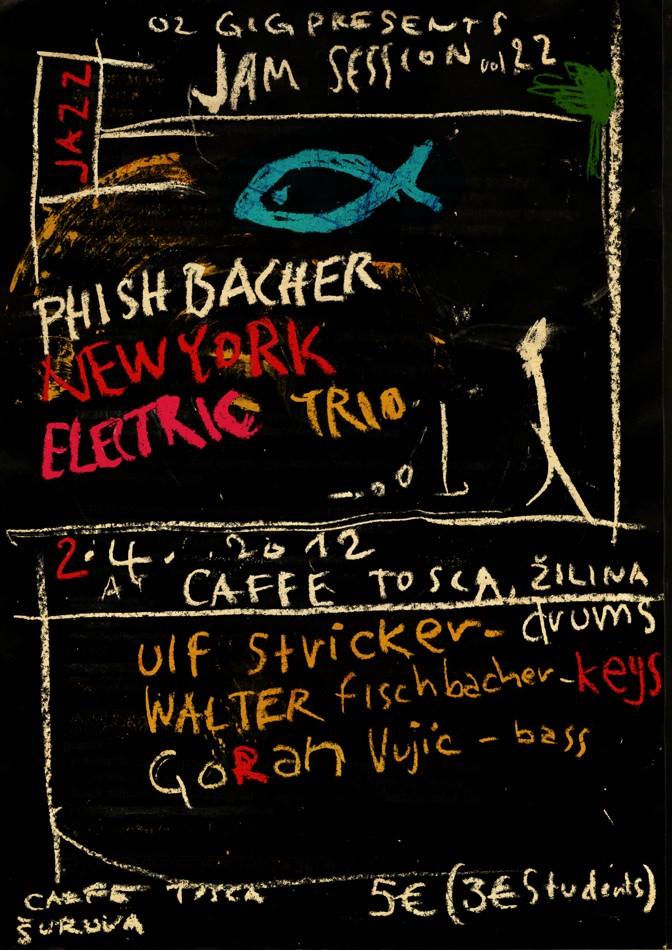 O2 GIG PRESENTS
JAM SESSION vol 22
JAZZ
PHISHBACHER
NEW YORK
ELECTRIC TRIO
2.4. 2012
AT CAFFE TOSCA, ŽILINA
Ulf Stricker - drums
WALTER fischbacher - keys
GoRan Vujic - bass
CAFFE TOSCA
ŠUROVA
5€ (3€ Students)